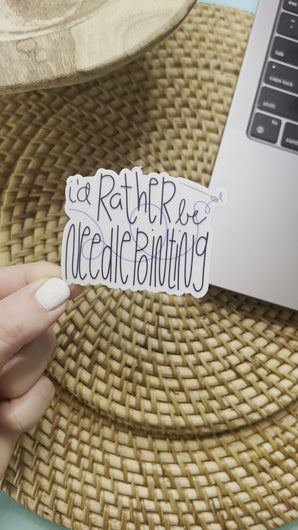 i'd RatheR be
NeedlePoiNtiNg
caps lock
shift
control